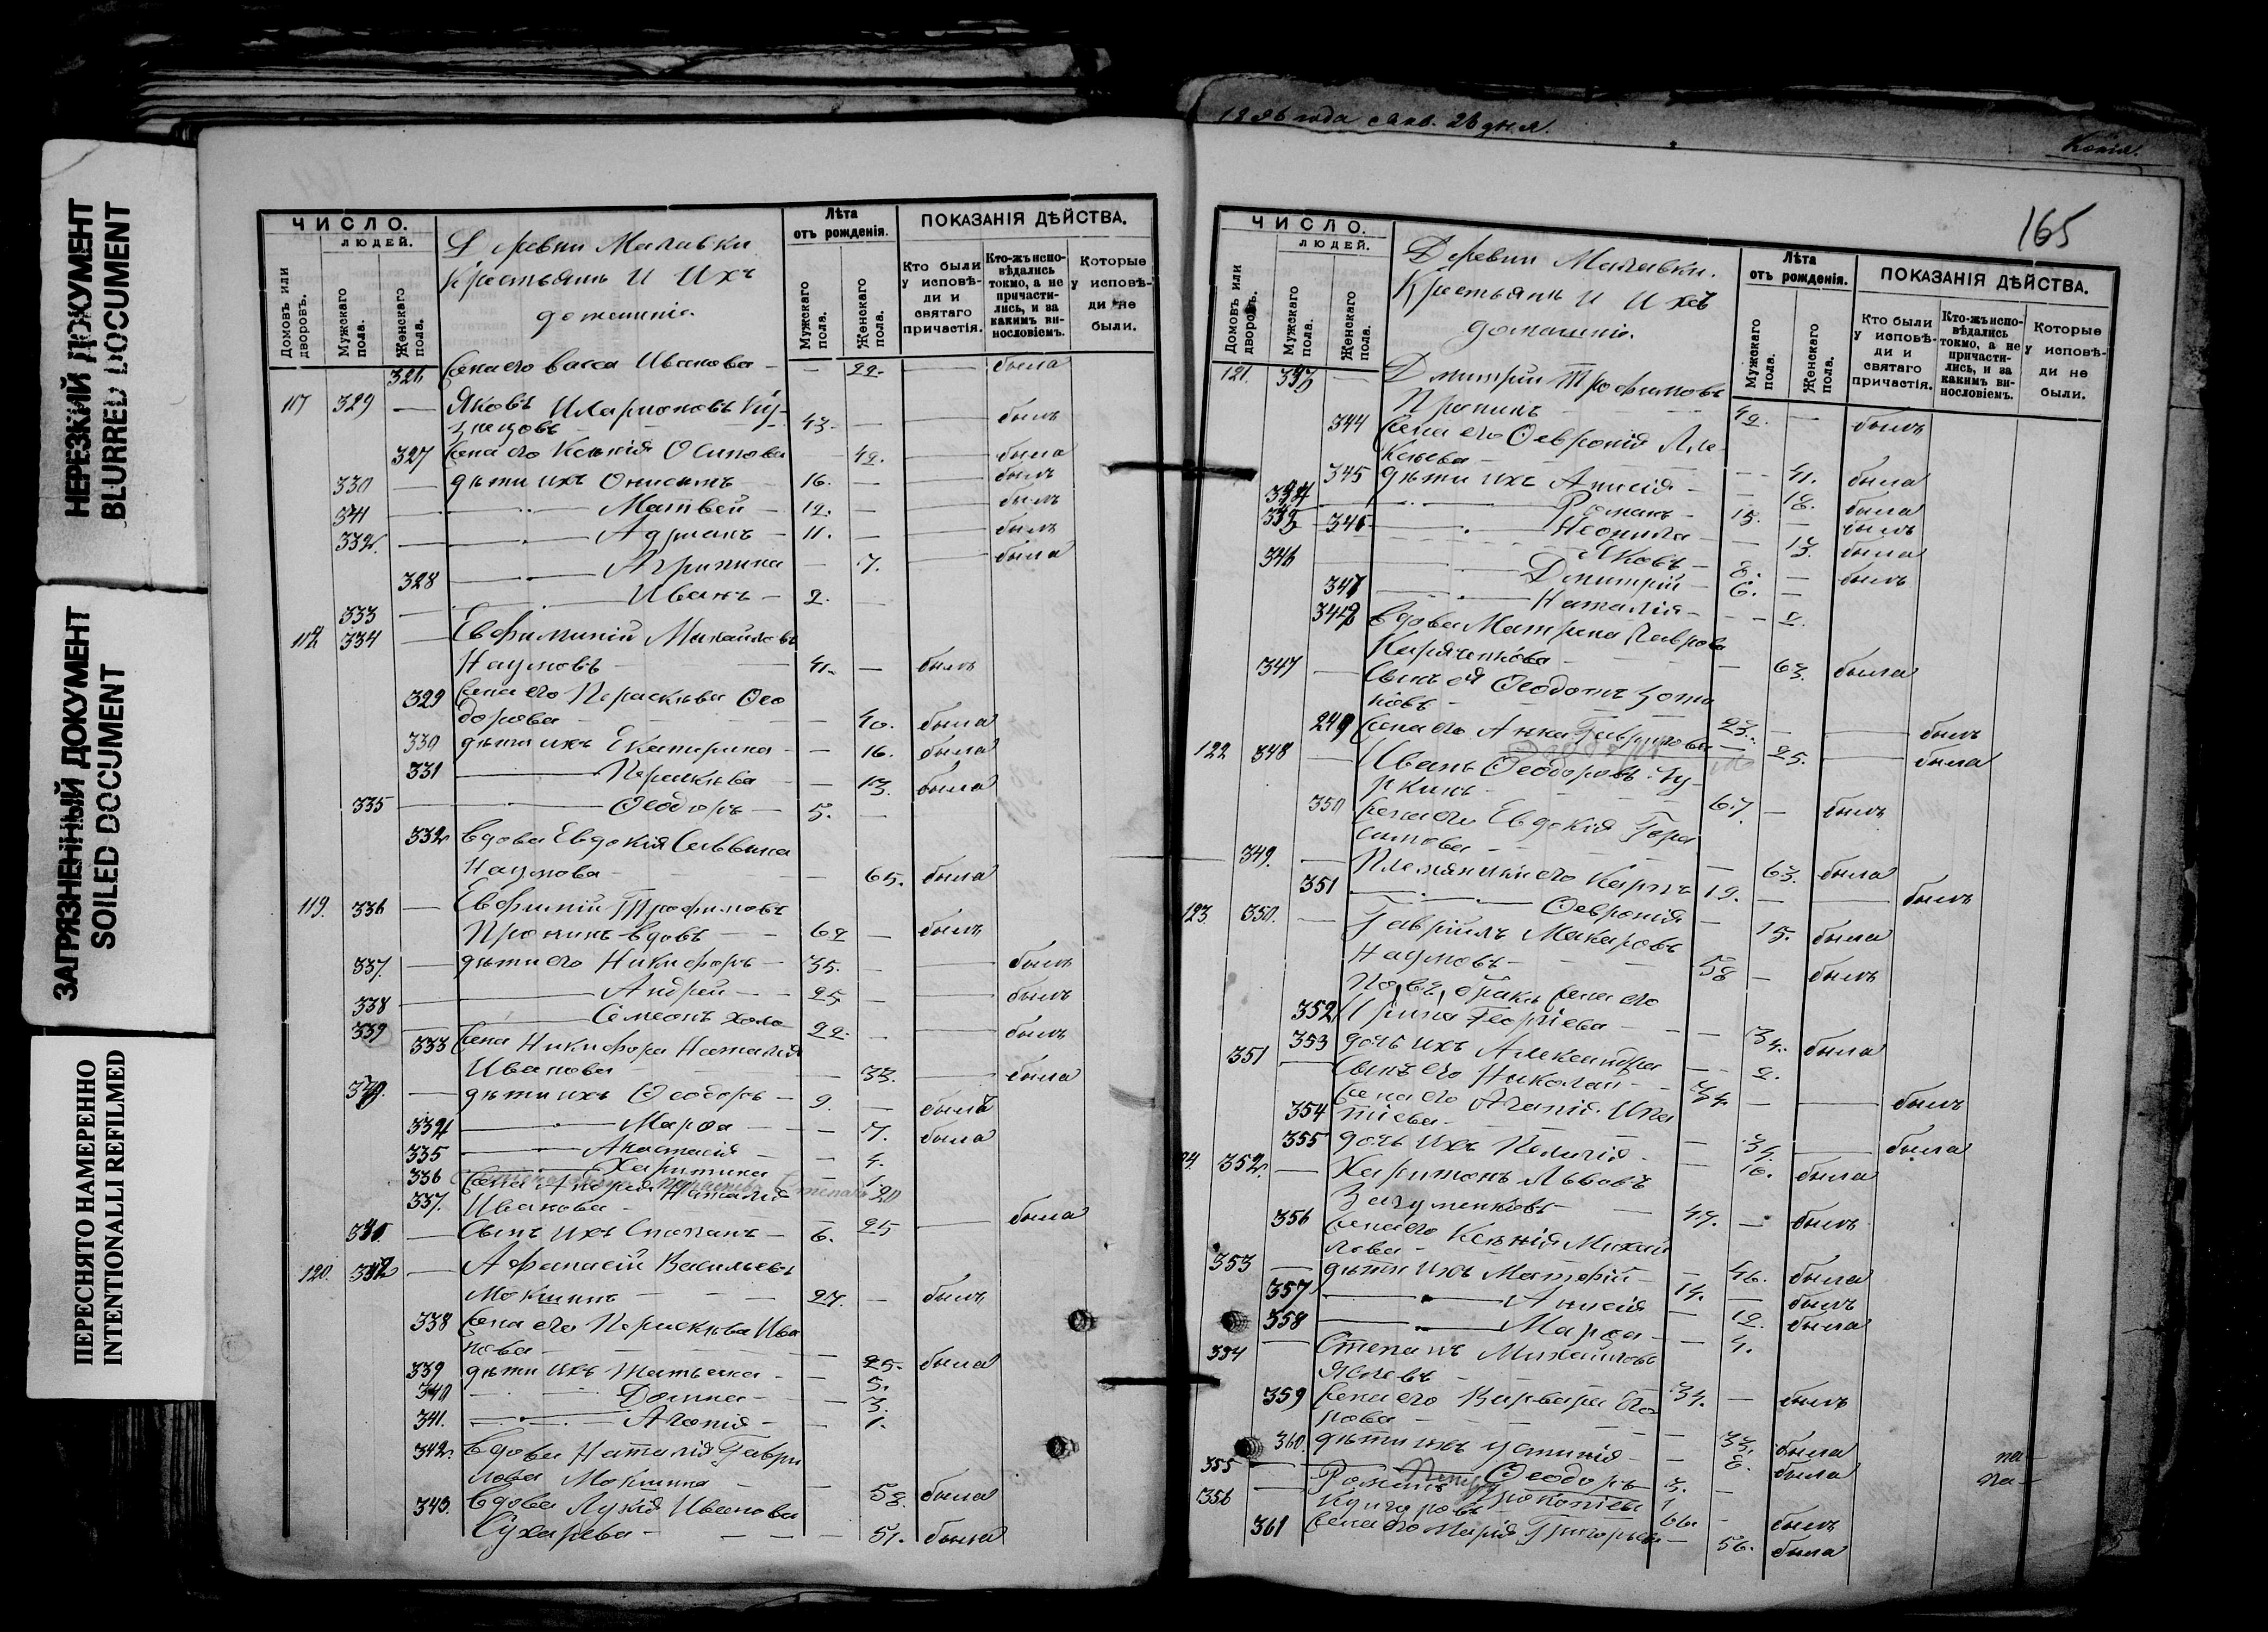 НЕРЕЗКИЙ ДОКУМЕНТ
BLURRED DOCUMENT
ЗАГРЯЗНЕННЫЙ ДОКУМЕНТ
SOILED DOCUMENT
ПЕРЕСНЯТО НАМЕРЕННО
INTENTIONALLI REFILMED
ЧИСЛО.
ЛЮДЕЙ.
Домовъ или дворовъ.
Мужскаго пола.
Женскаго пола.
Деревни Малавки
Крестьянъ и ихъ
домашніе.
Лѣта отъ рожденія.
Мужскаго пола.
Женскаго пола.
ПОКАЗАНІЯ ДѢЙСТВА.
Кто были у исповѣ-
ди и святаго причастія.
Кто-жъ испо-
вѣдались токмо, а не причасти-
лись, и за какимъ ви-
нословіемъ.
Которые у исповѣ-
ди не были.
326 Жена его Васса Иванова — — 22. — была
117 329 — Яковъ Иларионовъ Куз-
нецовъ 43. — — былъ
327 Жена его Ксенія Осипова — 42. — была
330 — дѣти ихъ Онисимъ 16. — — былъ
331 — Матвей — 12. — — былъ
332. — Адрианъ — 11. — — былъ
328 — Агрипина — 7. — была
333 — Иванъ — 2. —
118 334 — Евфимий Михайловъ
Наумовъ — 41. — былъ
329 Жена его Параскева Ѳео
дорова — — 40. была
330 дѣти ихъ Екатерина — — 16. была
331 — Параскева — — 13. была
335 — Ѳеодоръ — 5. —
332 Вдова Евдокія Саввина
Наумова — — 65. была
119. 336 — Евфимій Трофимовъ
Пронинъ вдовъ — 62 — былъ
337. — дѣти его Никифоръ — 35. — — былъ
338 — Андрей — 25 — — былъ
339 — Симеонъ холо 22. — — былъ
333 Жена Никифора Наталія
Иванова — — 33. — была
340. — дѣти ихъ Ѳеодоръ — 9. — былъ
334 — Марѳа — — 7. была
335 — Анастасія — — 4.
336 — Харитина — 1.
337. Жена Андрея Наталія
Иванова — 25 — была
341. — Сынъ ихъ Степанъ — 6.
120. 342 — Афанасій Васильевъ
Мокшинъ — 27. — былъ
338 Жена его Параскева Ива
нова — — 25. была
339 дѣти ихъ Татьяна — — 5.
340 — Домна — — 3.
341. — Агапія — — 1.
342. Вдова Наталія Гаври
лова Мокшина — — 58. была
343. Вдова Лукія Иванова
Сухарева — — — 51. была
1896 года Янв. 26 дня.
Копія.
165
ЧИСЛО.
ЛЮДЕЙ.
Домовъ или дворовъ.
Мужскаго пола.
Женскаго пола.
Деревни Малавки.
Крестьянъ и ихъ
домашніе.
Лѣта отъ рожденія.
Мужскаго пола.
Женскаго пола.
ПОКАЗАНІЯ ДѢЙСТВА.
Кто были у исповѣ-
ди и святаго причастія.
Кто-жъ испо-
вѣдались токмо, а не причасти-
лись, и за какимъ ви-
нословіемъ.
Которые у исповѣ-
ди не были.
121. 343 — Дмитрий Трофимовъ
Пронинъ — 42. — былъ
344 Жена его Ѳевронія Але-
ксеева — — 41. была
345 дѣти ихъ Анисія — — 18. была
344 — Романъ — 15. — былъ
346 — Неонила — — 13. была
Яковъ — 8. — былъ
346 — Дмитрій — 6. —
347 — Наталія — — —
348 Вдова Матрена Лаврова
— 63. была
347 — Сынъ ея Ѳеодотъ Зоти
ковъ — 23. — — былъ
249 Жена его Анна Гаврилова — 25. — была
122 348 — Иванъ Ѳеодоровъ Чу-
ркинъ — 67. — былъ
350 Жена его Евдокія Гера
симова — — 63. была
349. — Племянники его Карпъ 19. — — былъ
351 — Ѳевронія — 15. была
123 350. — Гавріилъ Макаровъ
Наумовъ — 58 — былъ
бракъ жена его
352 Ирина Георгіева — — 34. была
353 дочь ихъ Александра — — 2.
351 Сынъ его Николай — 34. — — былъ
354 Жена его Агапія Ипа
тіева — — 34. — была
355 дочь ихъ Пелагія — — 10. была
352. — Харитонъ Львовъ
Загуменновъ — 47. — былъ
356 Жена его Ксенія Михай
лова — — 46. была
353 — дѣти ихъ Матѳій — 14. — былъ
357 — Анисія — 12. была
358 — Марѳа — — 4.
354 — Степанъ Михайловъ
34. — былъ
359 Жена его Варвара Его
рова — — 33. была
360. дѣти ихъ Устинія — — 8. была
355 — Ѳеодоръ — 3. —
356 — Романъ Прокопіевъ
66. — былъ
361 Жена его Марія Григорьева — 56. была